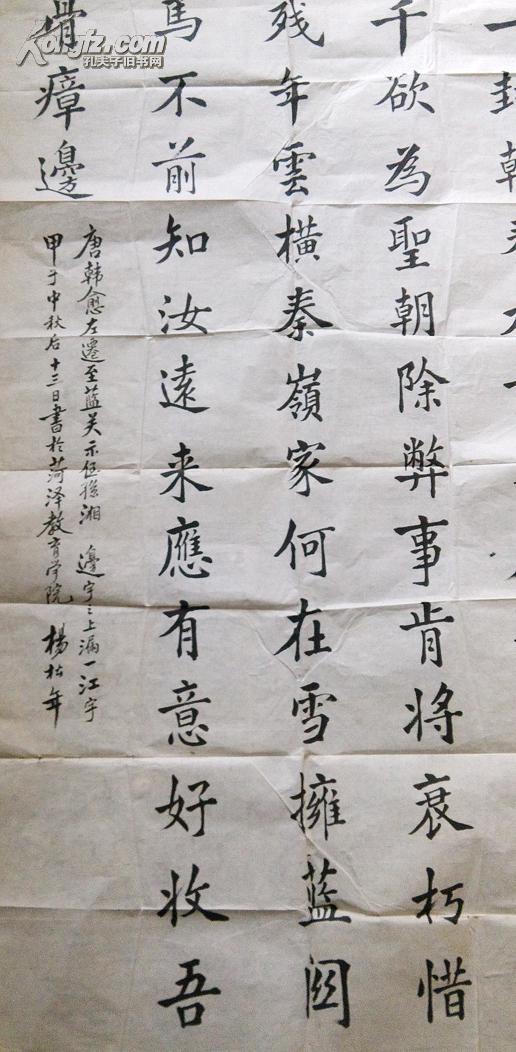 Kongfz.com
孔夫子旧书网
一封朝奏九
千欲為聖朝除弊事肯将衰朽惜
残年雲橫秦嶺家何在雪擁蓝関
馬不前知汝遠来應有意好收吾
骨瘴邊
唐韩愈左遷至蓝关示侄孫湘 邊字之上漏一江字
甲子中秋后十三日書於菏泽教育学院 楊松年